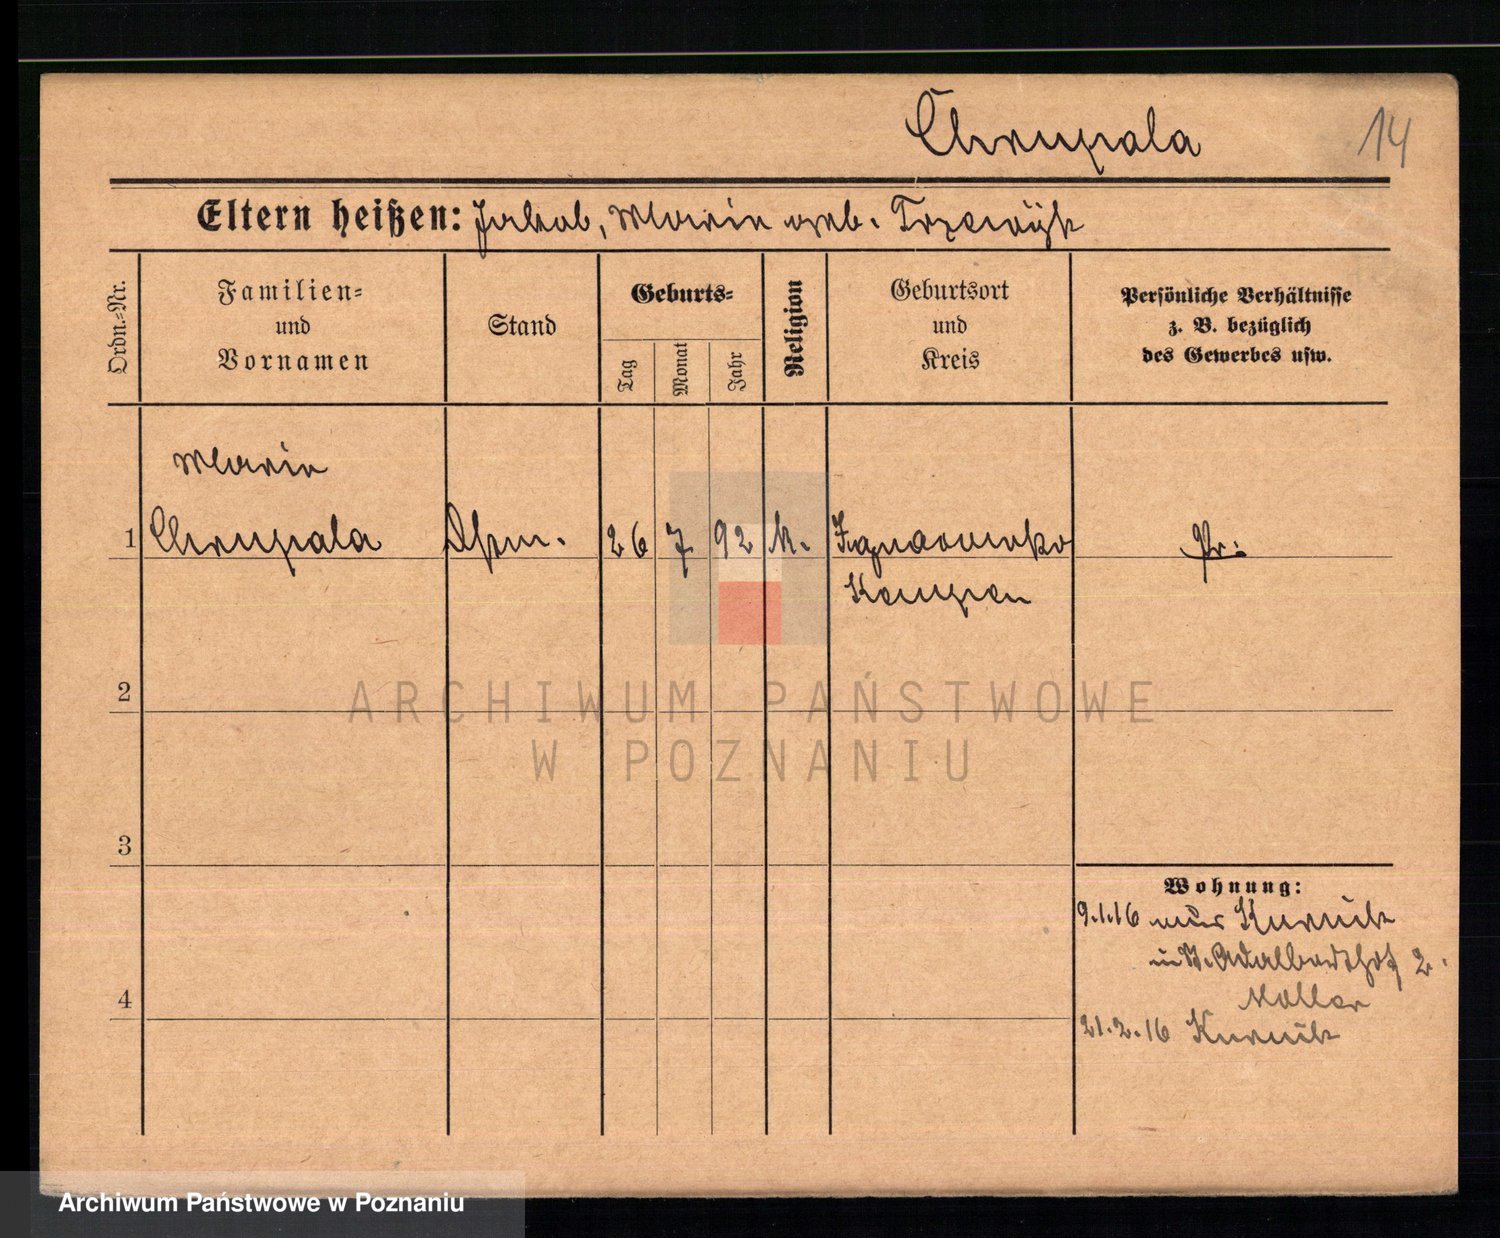 Chrupala 14
Eltern heißen: Jakob, Maria geb.
Ordn.=Nr.
Familien=
und
Vornamen
Stand
Geburts=
Tag
Monat
Jahr
Religion
Geburtsort
und
Kreis
Persönliche Verhältnisse
z. B. bezüglich
des Gewerbes usw.
Maria
1 Chrupala 26 7 92 k. Pr:
Kempen
2
3
4
Wohnung:
9.1.16 aus Kurnik
St. Adalbertstr 2.
21.2.16 Kurnik
ARCHIWUM PAŃSTWOWE
W POZNANIU
Archiwum Państwowe w Poznaniu